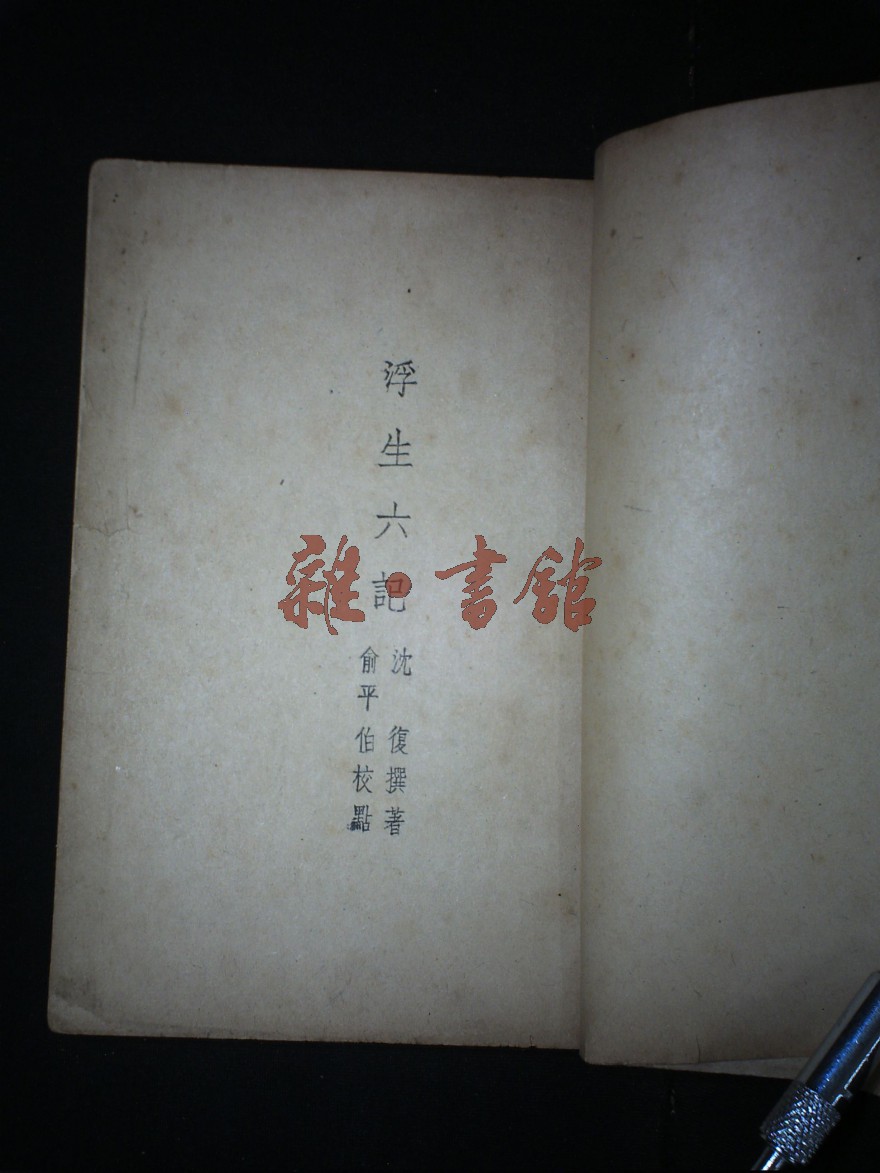 浮生六記
沈復撰著
俞平伯校點
雜·書館